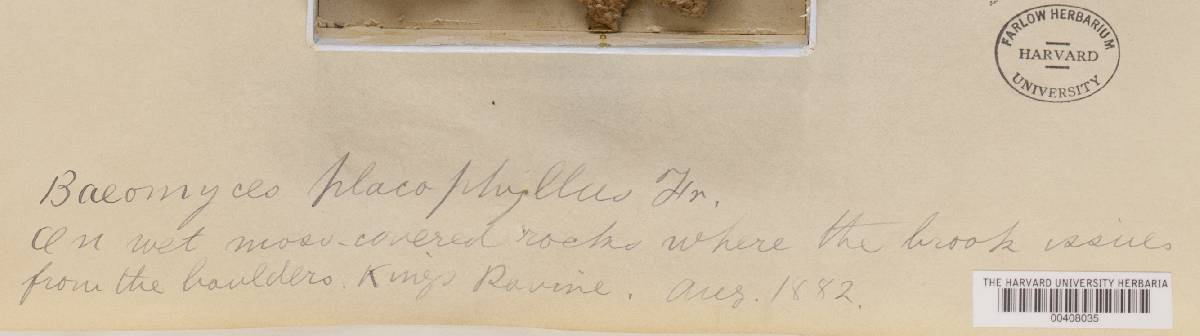 FARLOW HERBARIUM
HARVARD
UNIVERSITY
Baeomyces placophyllus Fr.
On wet moss-covered rocks where the brook issues
from the boulders. Kings Ravine. Aug. 1882.
THE HARVARD UNIVERSITY HERBARIA
00408035